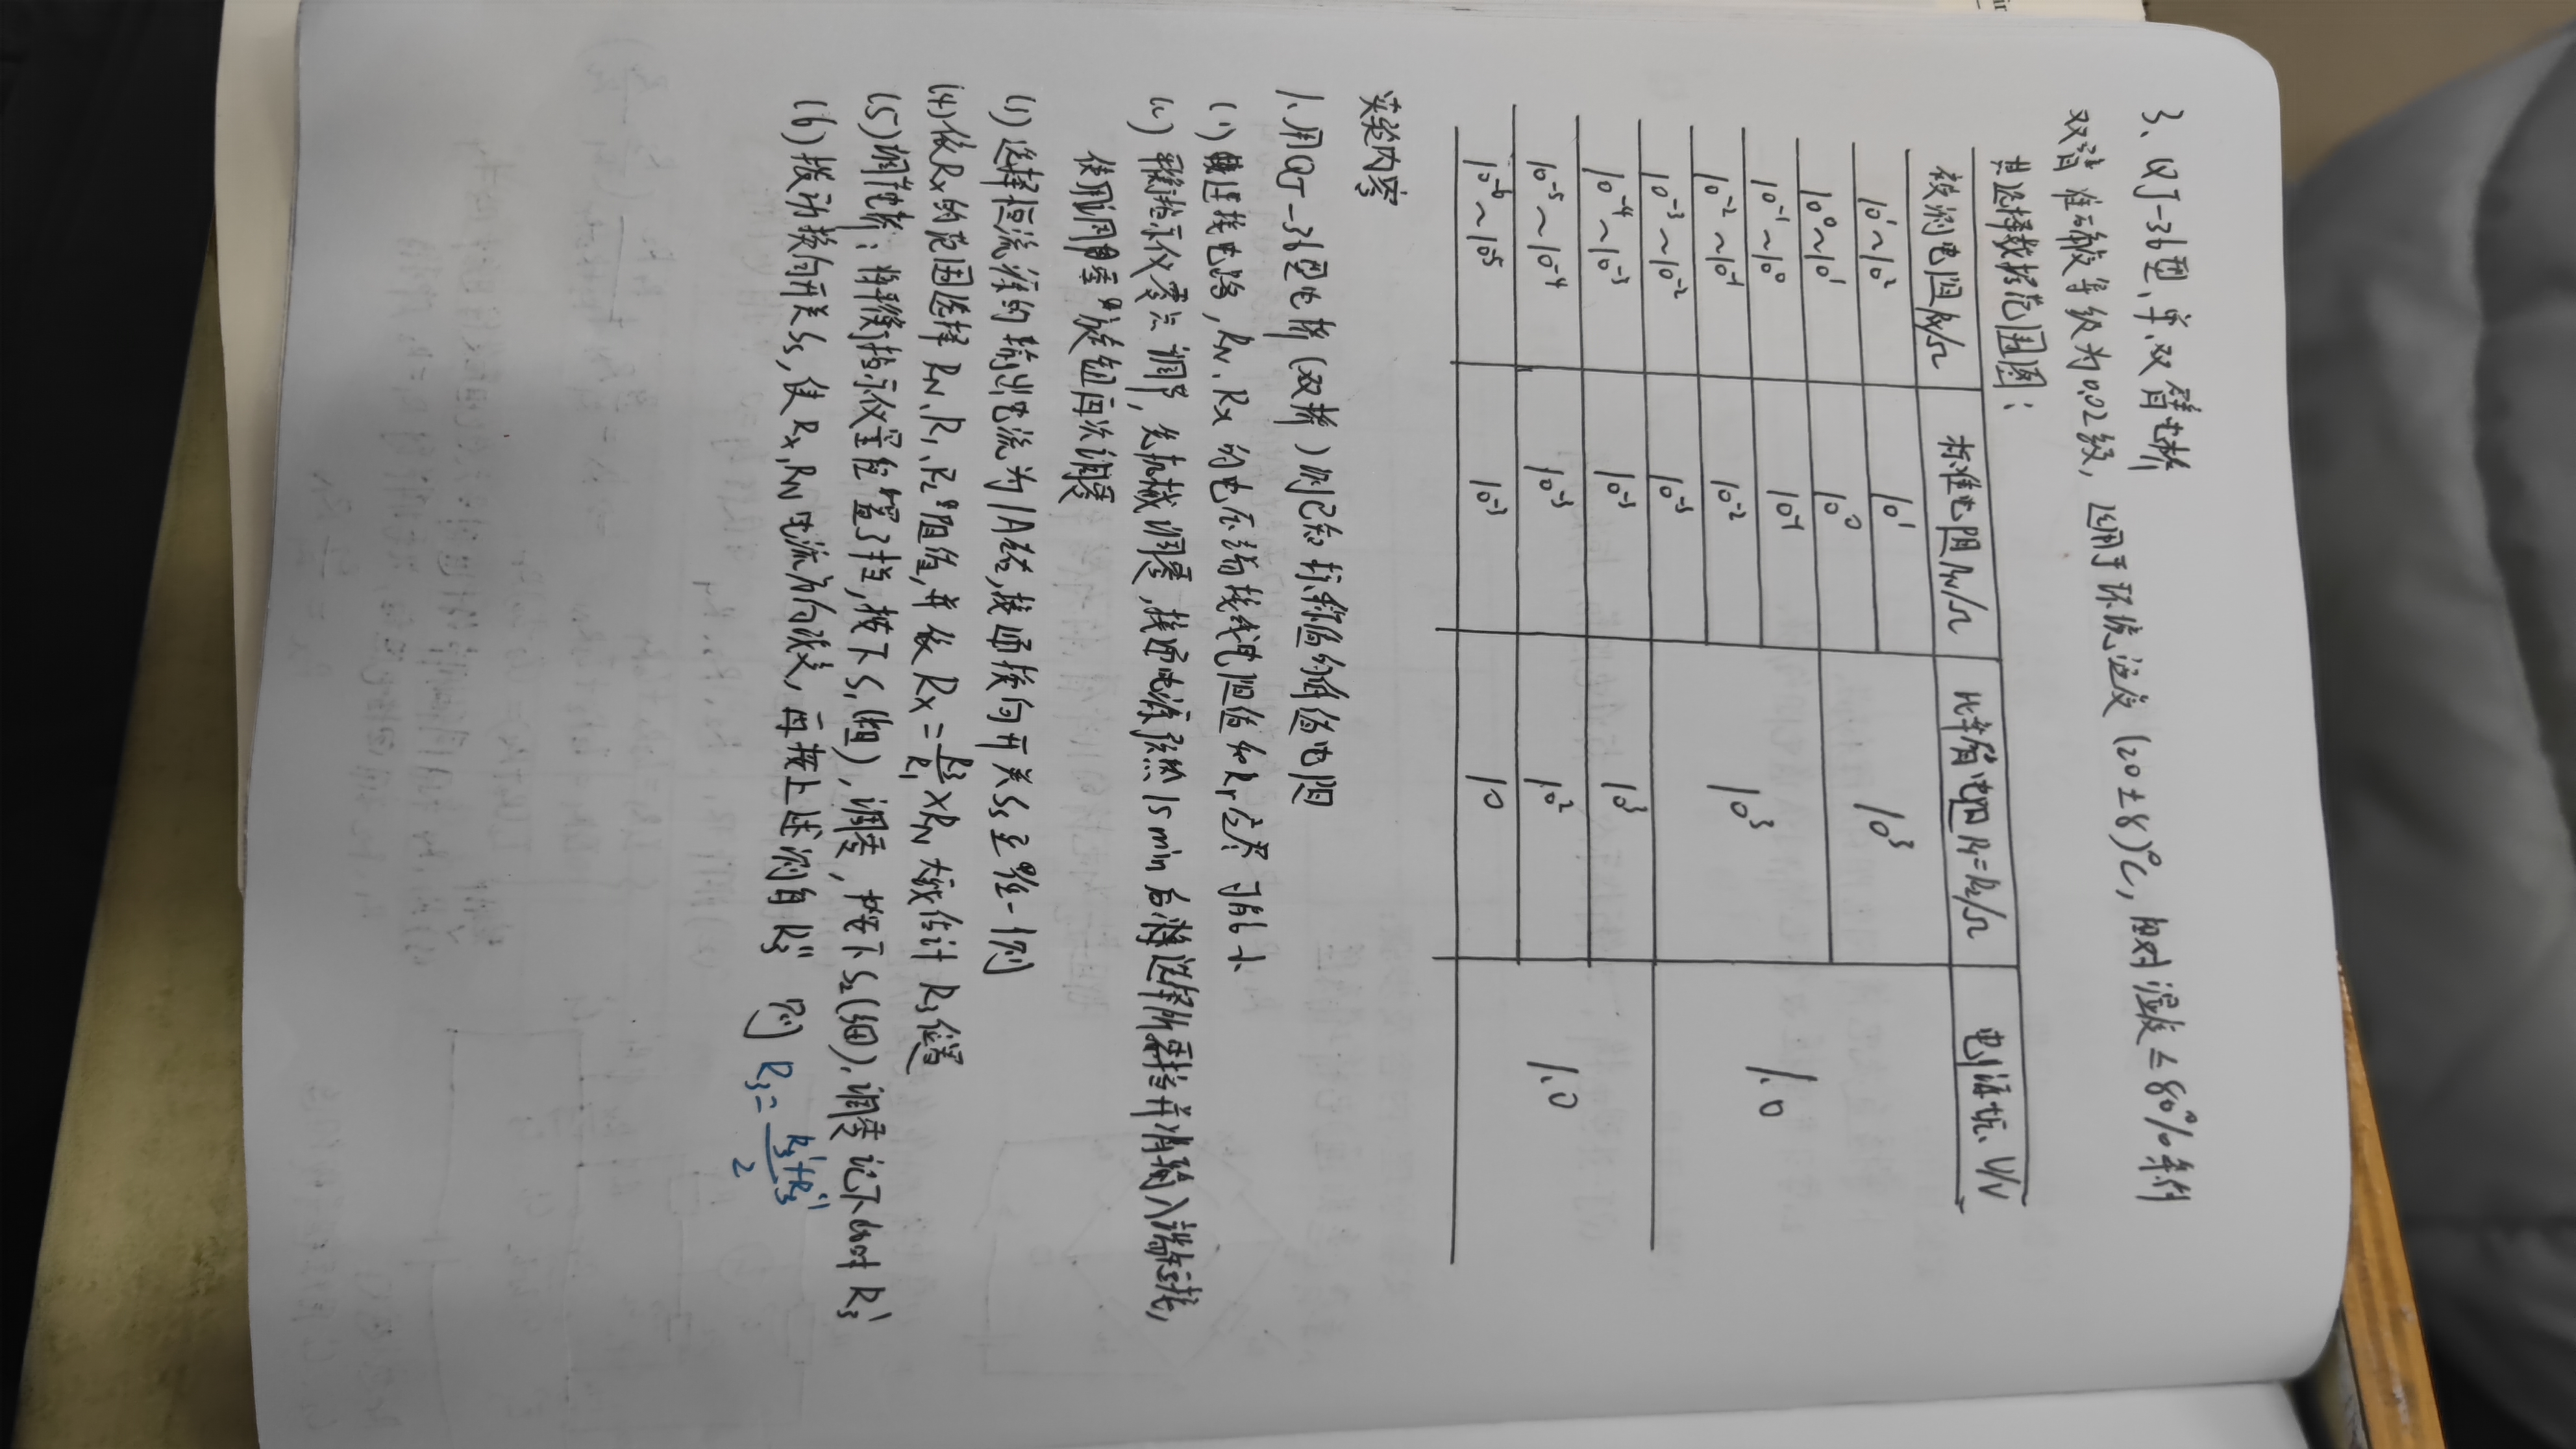 3、QJ-36型、单、双臂电桥
双臂准确度等级为0.02级，适用于环境温度（20±8)℃，相对湿度≤80%条件
其选择数据范围图：
被测电阻Rx/Ω 标准电阻RN/Ω 比率臂电阻R1=R2/Ω 电源, V/V
10¹～10² 10¹ 10³ 1.0
10⁰～10¹ 10⁰
10⁻¹～10⁰ 10⁻¹ 10³
10⁻²～10⁻¹ 10⁻²
10⁻³～10⁻² 10⁻³
10⁻⁴～10⁻³ 10⁻³ 10³ 1.0
10⁻⁵～10⁻⁴ 10⁻³ 10²
10⁻⁶～10⁻⁵ 10⁻³ 10
实验内容
1.用QJ-36型电桥（双桥）测已知标称值的低值电阻
(1) 连接电路，RN、Rx的电压端接线电阻值和Rr应尽可能小
(2) 平衡指示仪零点调节，先机械调零，接通电源预热15min后将选择所需档并将输入端短接，
使用调零旋钮再次调零
(3) 选择恒流源的输出电流为1A左右，接通换向开关S3至任一侧
(4) 依Rx的范围选择RN、R1、R2阻值，并依Rx=R3/R1×RN大致估计R3位置
(5) 调节电桥：将平衡指示仪量程置于挡，按下S1(粗)，调零，按下S2(细)，调零 记下此时R3'
(6) 拨动换向开关S3，使Rx、RN电流方向改变，再按上述测得R3'' 则 R3=(R3'+R3'')/2